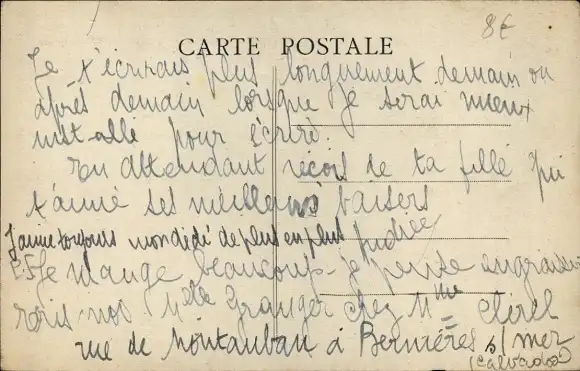 8€
CARTE POSTALE
Je t'écrirais plus longuement demain ou
après demain lorsque je serai mieux
installé pour écrire.
En attendant reçois de ta fille qui
t'aime ses meilleurs baisers
J'aime toujours mon dédé de plus en plus
Je mange beaucoup je pense
Melle Granger chez Mme
rue de Montauban à Bernières s/mer
(Calvados)